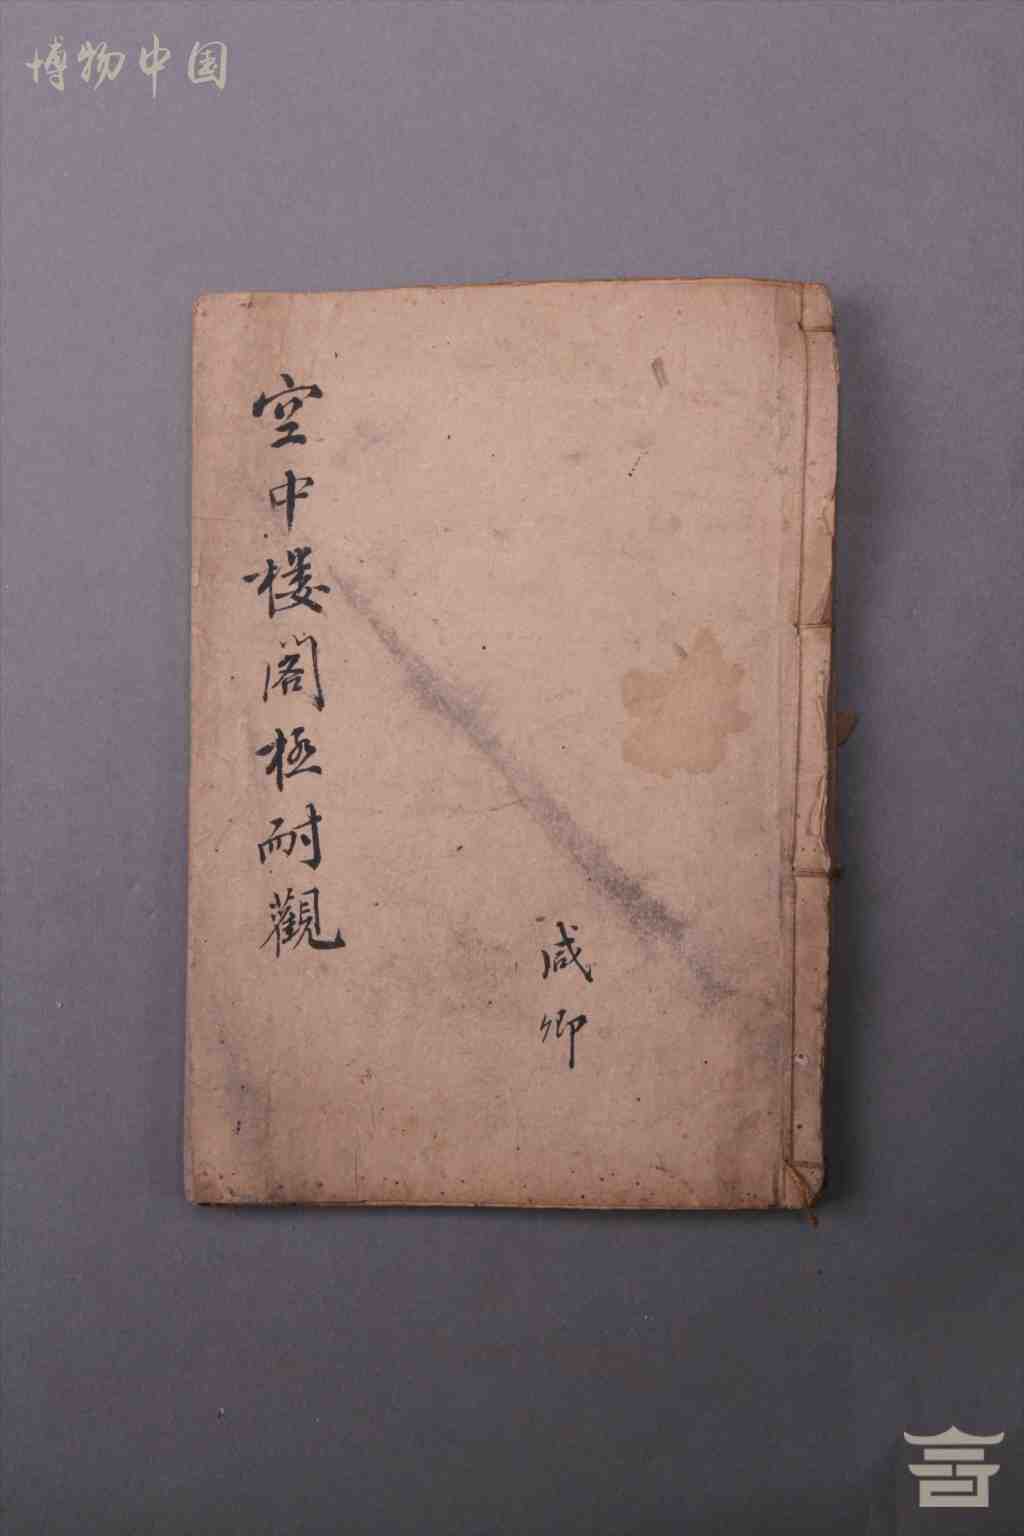 博物中国
空中楼閣極耐觀
咸卿